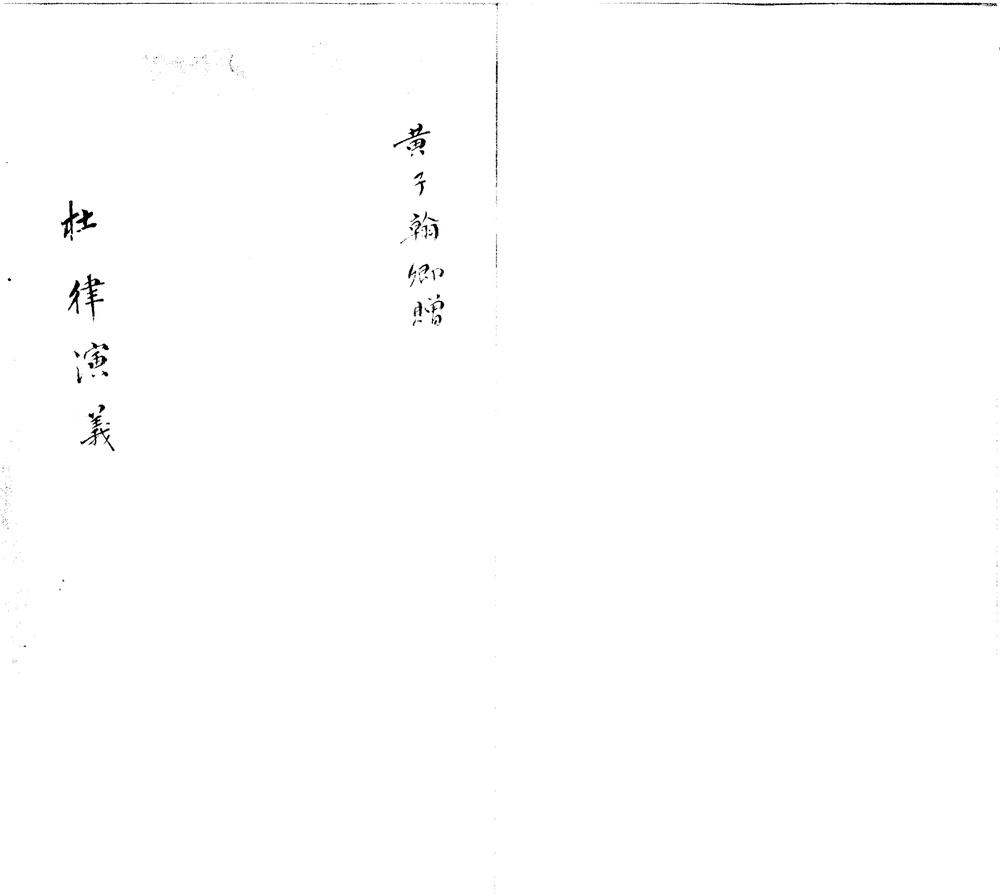 黄子翰卿贈
杜律演義